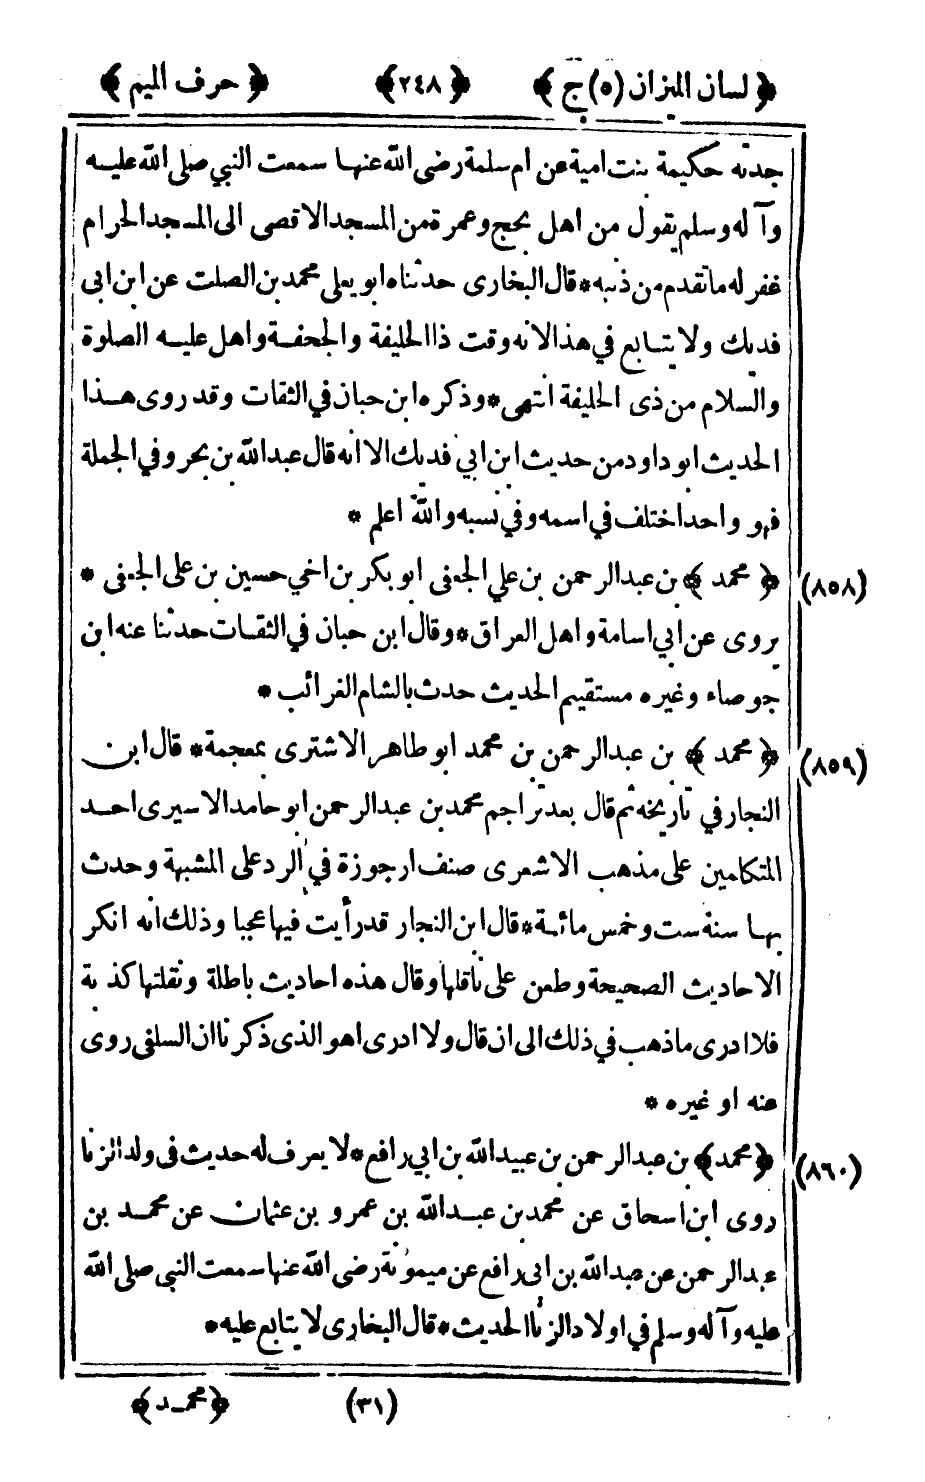 ﴿ لسان الميزان (٥) ج ﴾ ﴿ ٢٤٨ ﴾ ﴿ حرف الميم ﴾
جدته حكيمة بنت امية عن ام سلمة رضى الله عنها سمعت النبي صلى الله عليه
وآله وسلم يقول من اهل بحج وعمرة من المسجد الاقصى الى المسجد الحرام
غفر له ماتقدم من ذنبه * قال البخارى حدثناه ابو يعلى محمد بن الصلت عن ابن ابى
فديك ولا يتابع في هذا لانه وقت ذا الحليفة والجحفة واهل عليه الصلوة
والسلام من ذى الحليفة انتهى * وذكره ابن حبان في الثقات وقد روى هذا
الحديث ابو داود من حديث ابن ابي فديك الا انه قال عبد الله بن بحر وفي الجملة
فهو واحد اختلف في اسمه وفي نسبه والله اعلم *
(٨٥٨) ﴿ محمد ﴾ بن عبد الرحمن بن علي الجعفى ابو بكر بن اخي حسين بن على الجعفى *
يروى عن ابي اسامة واهل العراق * وقال ابن حبان في الثقات حدثنا عنه ابن
جوصاء وغيره مستقيم الحديث حدث بالشام الغرائب *
(٨٥٩) ﴿ محمد ﴾ بن عبد الرحمن بن محمد ابو طاهر الاشترى بمعجمة * قال ابن
النجار في تاريخه ثم قال بعد تراجم محمد بن عبد الرحمن ابو حامد الاسيرى احد
المتكلمين على مذهب الاشعرى صنف ارجوزة في الرد على المشبهة وحدث
بها سنة ست وخمس مائة * قال ابن النجار قد رأيت فيها عجبا وذلك انه انكر
الاحاديث الصحيحة وطعن على ناقلها وقال هذه احاديث باطلة ونقلتها كذبة
فلا ادرى ماذهب في ذلك الى ان قال ولا ادرى اهو الذى ذكرنا ان السلفى روى
عنه او غيره *
(٨٦٠) ﴿ محمد ﴾ بن عبد الرحمن بن عبيد الله بن ابي رافع * لا يعرف له حديث فى ولد الزنا
روى ابن اسحاق عن محمد بن عبد الله بن عمرو بن عثمان عن محمد بن
عبد الرحمن عن عبد الله بن ابى رافع عن ميمونة رضى الله عنها سمعت النبى صلى الله
عليه وآله وسلم في اولاد الزنا الحديث * قال البخارى لا يتابع عليه *
(٣١) ﴿ محمد ﴾